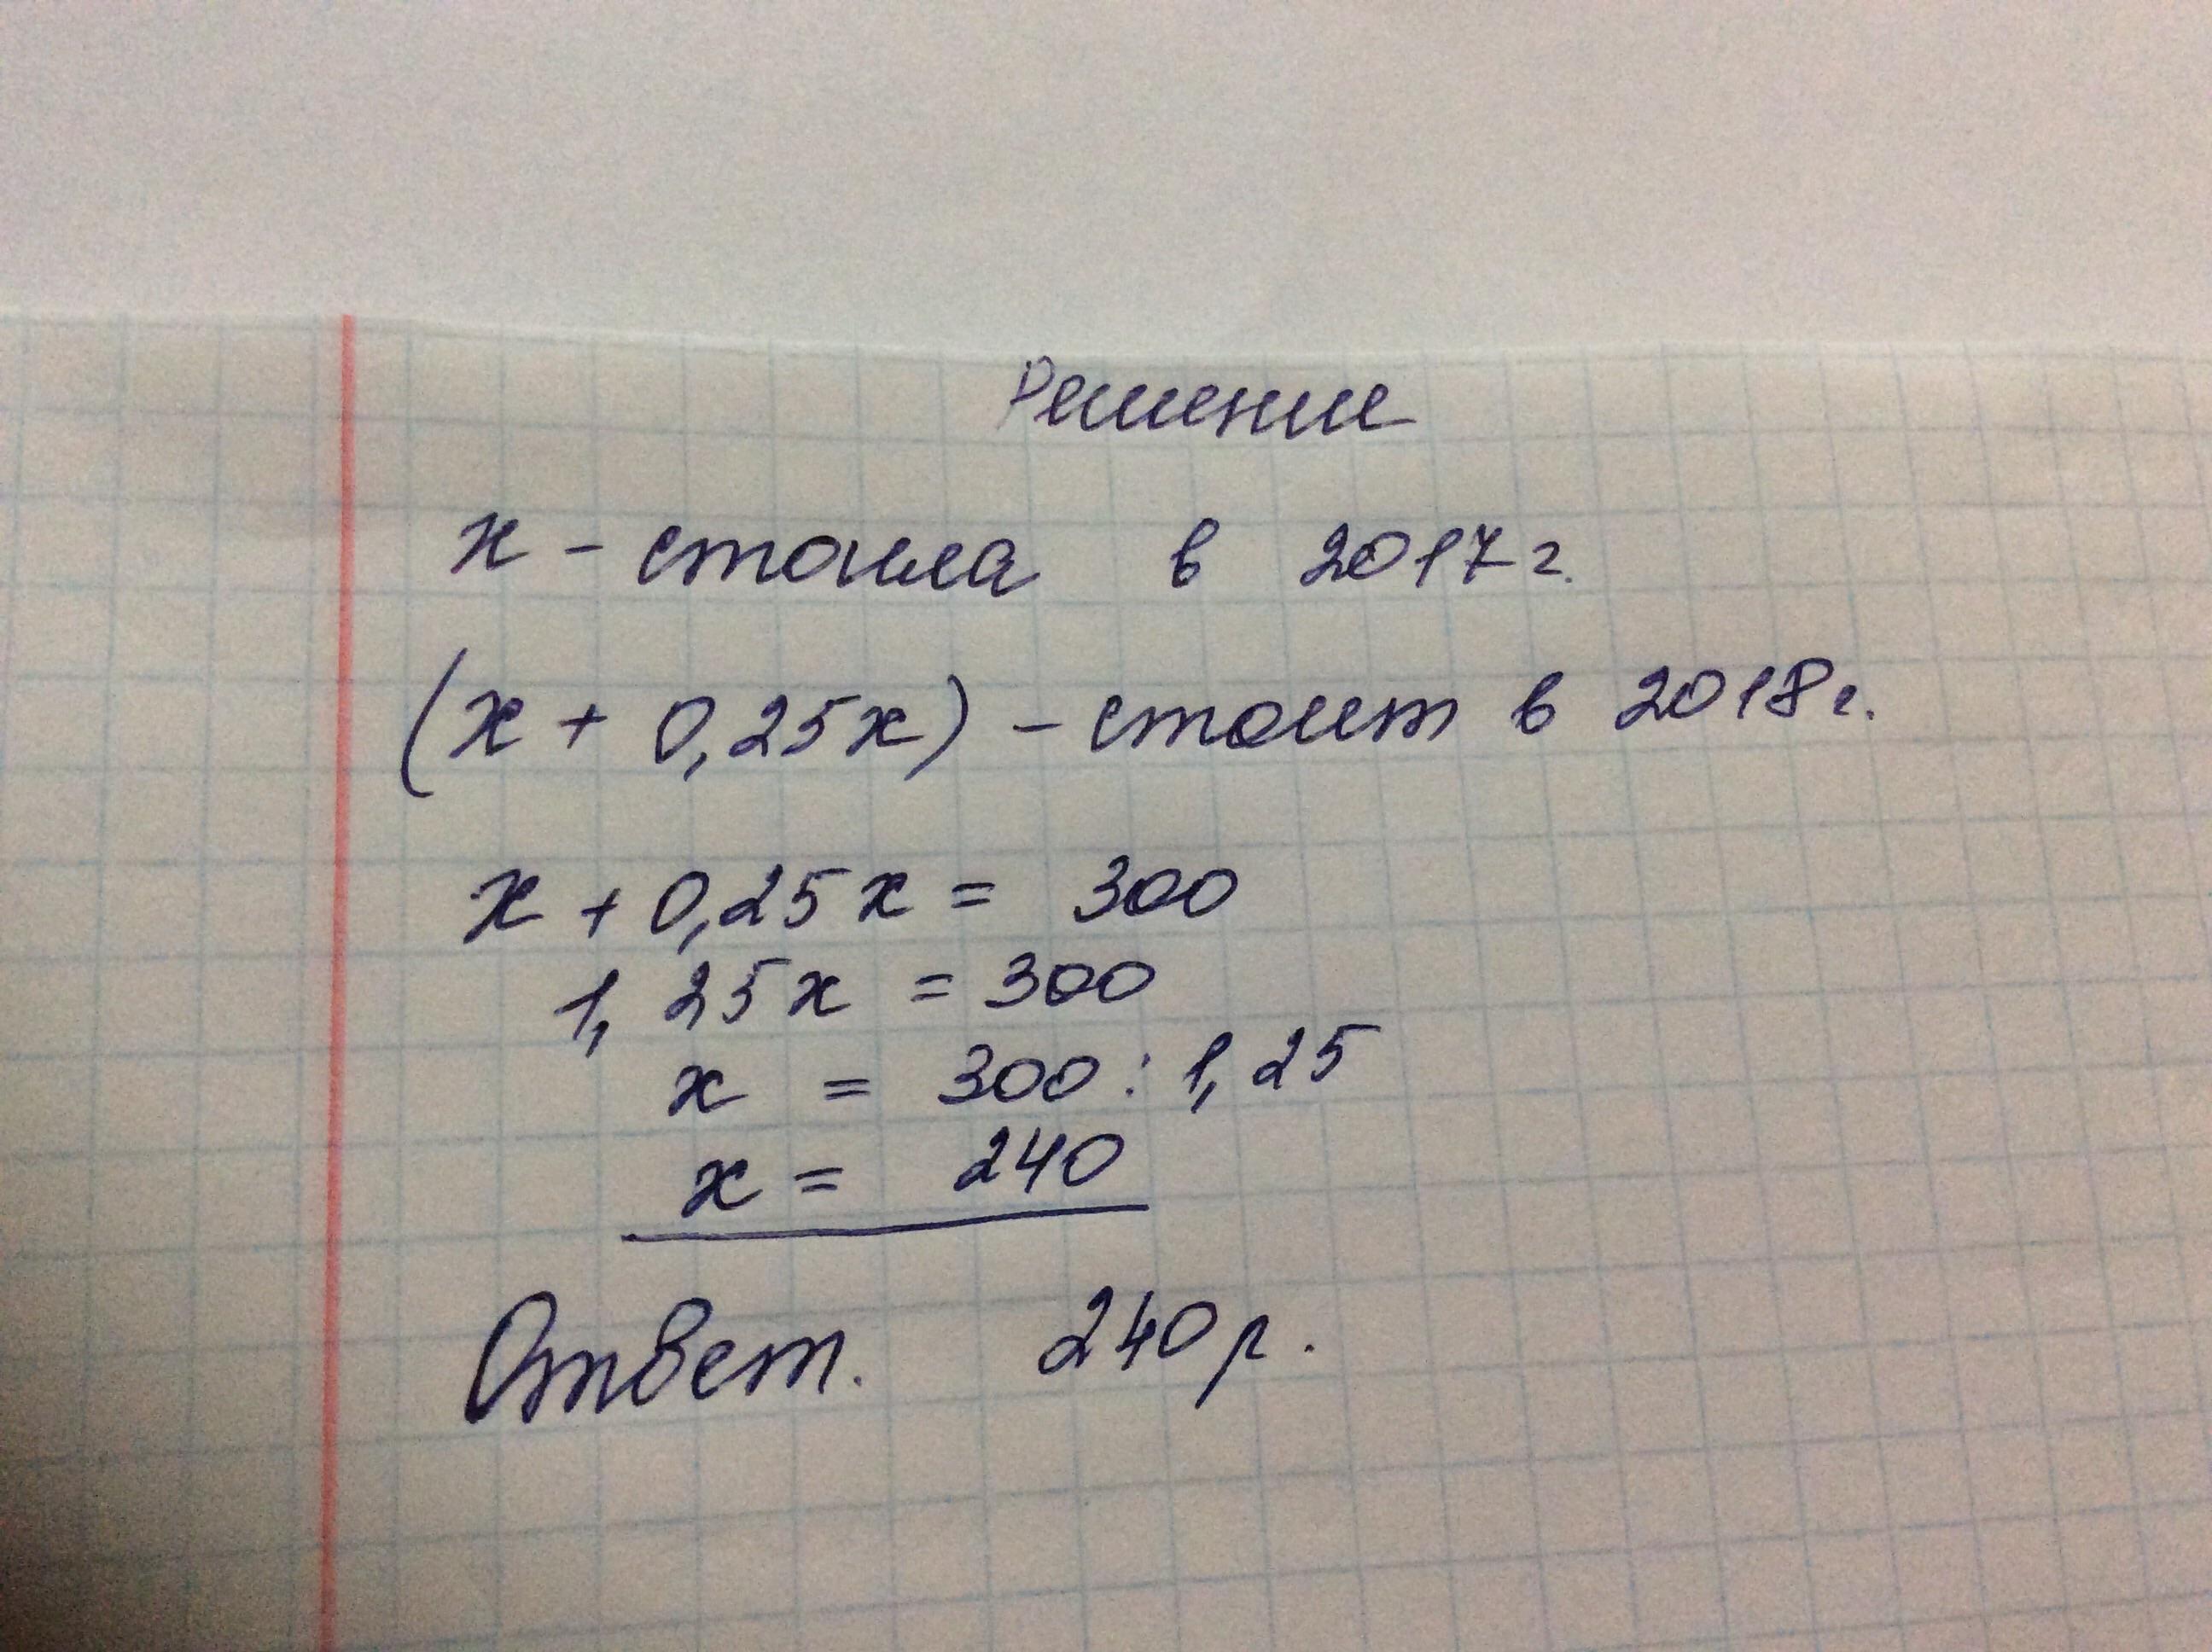 Решение
x - стоила в 2017 г.
(x + 0,25x) - стоит в 2018 г.
x + 0,25x = 300
1,25x = 300
x = 300 : 1,25
x = 240
Ответ. 240 р.